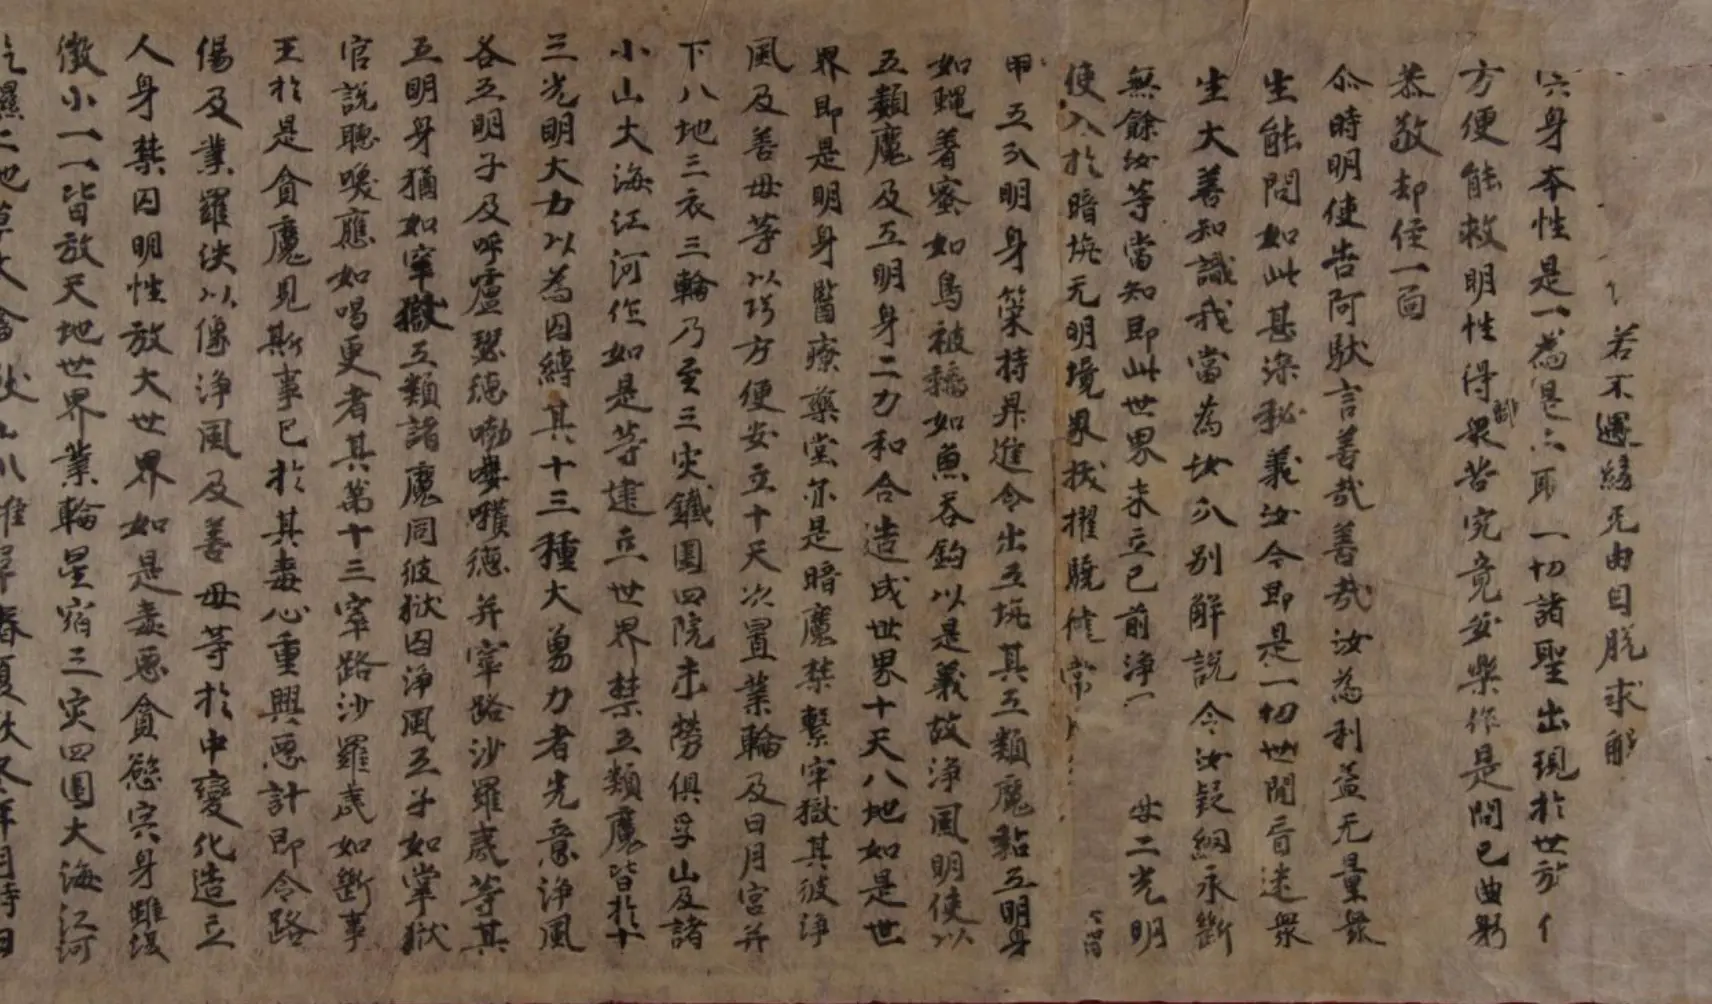 若不遇緣无由自脫求解
宍身本性是一為是二耶一切諸聖出現於世
方便能救明性得離眾苦究竟安樂作是問已曲躬
恭敬却住一面
尒時明使告阿馱言善哉善哉汝為利益无量眾
生能問如此甚深秘義汝今即是一切世間盲迷眾
生大善知識我當為汝分別解說令汝疑網永斷
無餘汝等當知即此世界未立已前淨 母二光明
使入於暗坑无明境界拔擢驍健常
甲五分明身策持昇進令出五坑其五類魔黏五明身
如蠅著蜜如鳥被黐如魚吞鈎以是義故淨風明使以
五類魔及五明身二力和合造成世界十天八地如是世
界即是明身醫療藥堂亦是暗魔禁繫牢獄其彼淨
風及善母等以巧方便安立十天次置業輪及日月宮并
下八地三衣三輪乃至三灾鐵圍四院未勞俱孚山及諸
小山大海江河作如是等建立世界禁五類魔皆於十
三光明大力以為囚縛其十三種大勇力者先意淨風
各五明子及呼嚧瑟德嘞嘍囋德并窣路沙羅夷等其
五明身猶如牢獄五類諸魔同彼獄囚淨風五子如掌獄
官說聽喚應如喝更者其第十三窣路沙羅夷如斷事
王於是貪魔見斯事已於其毒心重興惡計即令路
傷及業羅泱以像淨風及善母等於中變化造立
人身禁囚明性放大世界如是毒惡貪慾宍身雖復
微小一一皆放天地世界業輪星宿三灾四圍大海江河
二地草木禽 春夏秋冬年月時日